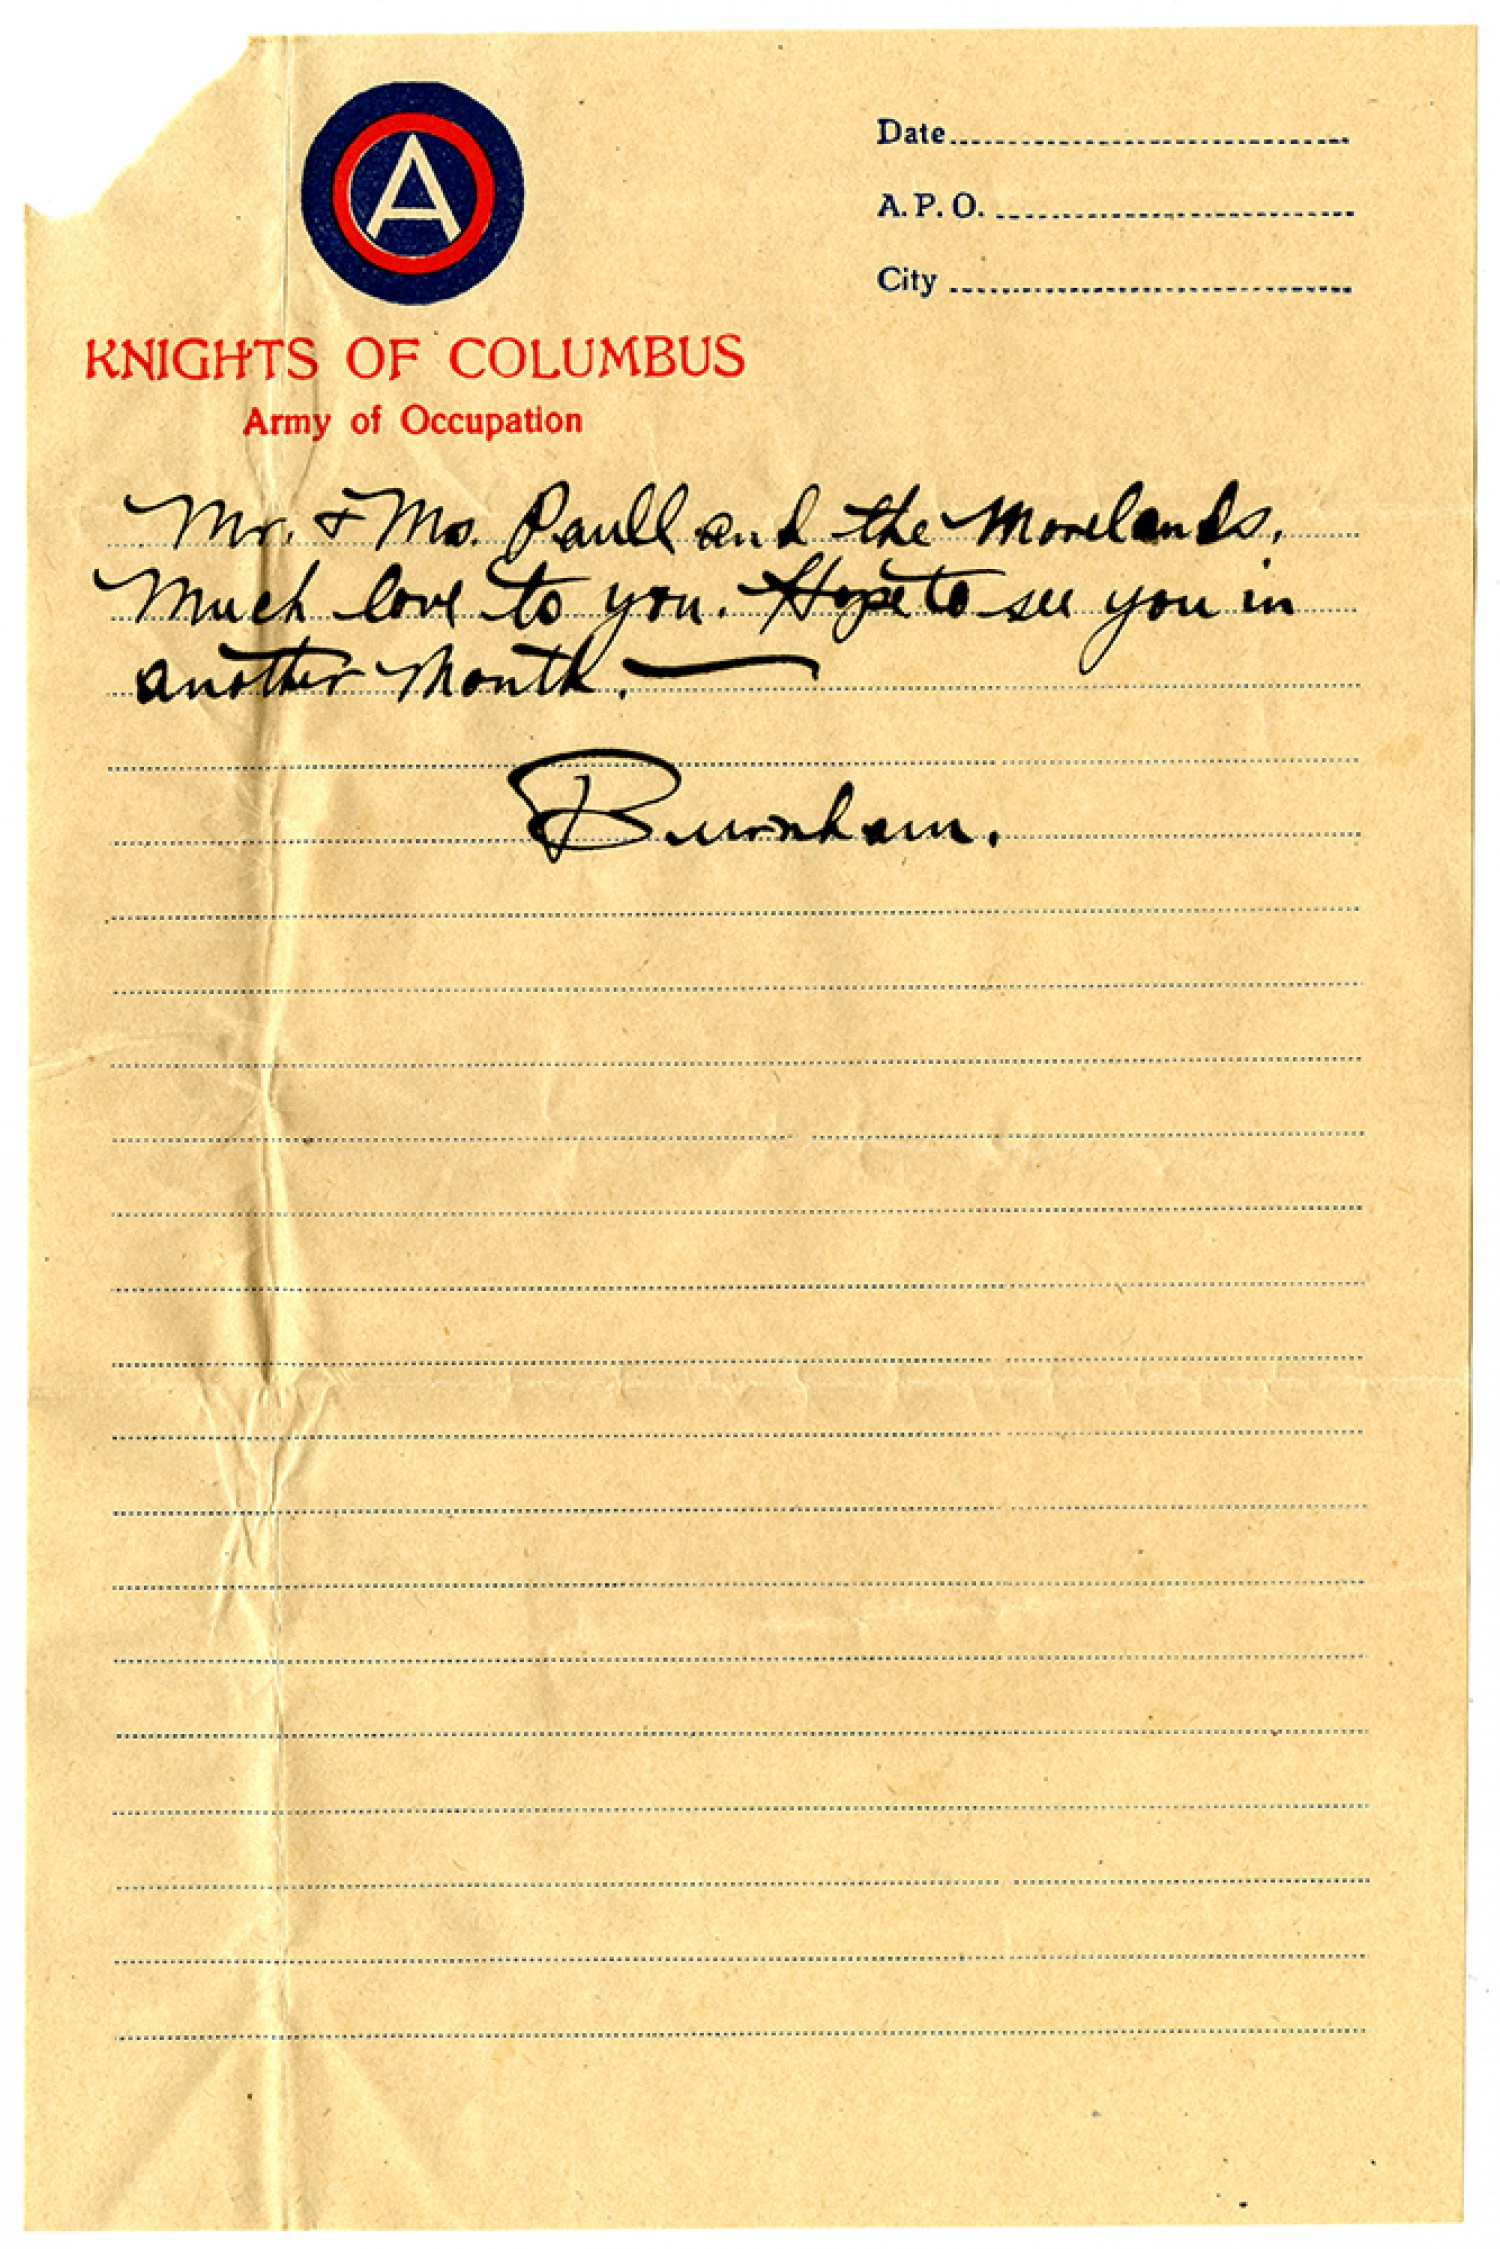 A
Date
A. P. O.
City
KNIGHTS OF COLUMBUS
Army of Occupation
Mr. & Mrs. Paull and the Morelands.
Much love to you. Hope to see you in
another month. —
Burnham.